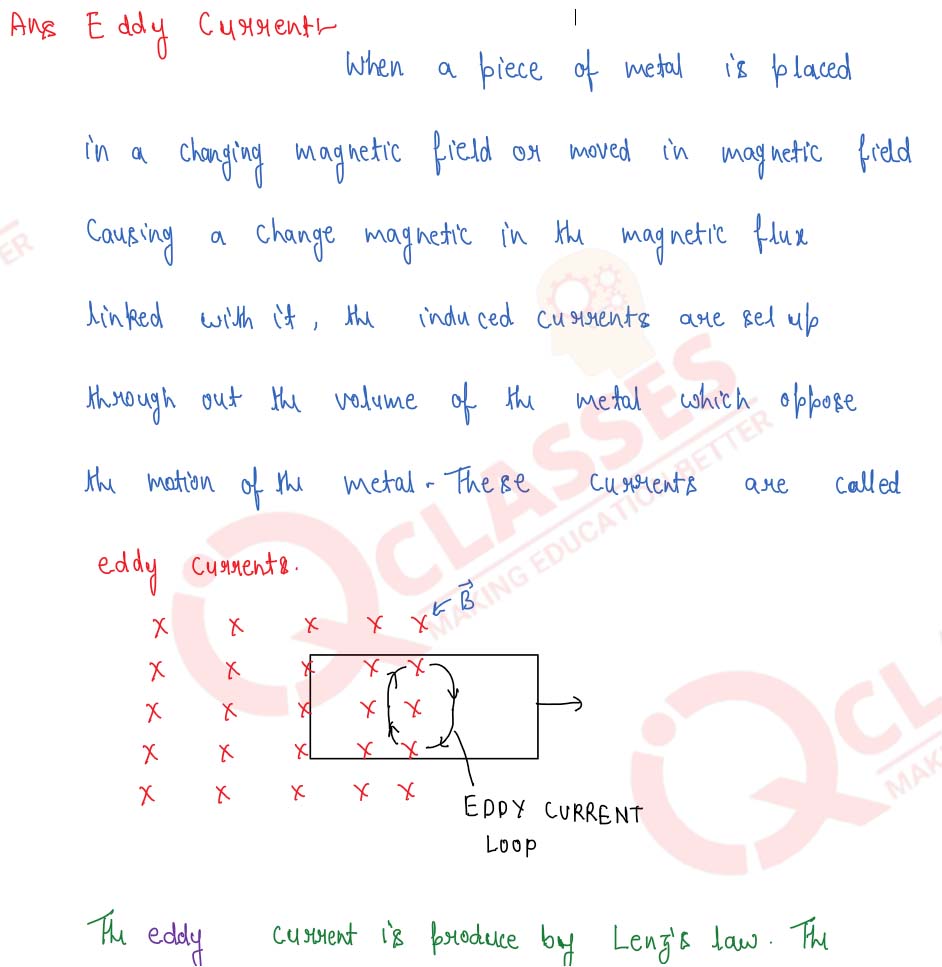 Ans Eddy Current
When a piece of metal is placed
in a changing magnetic field or moved in magnetic field
Causing a change magnetic in the magnetic flux
linked with it, the induced currents are set up
through out the volume of the metal which oppose
the motion of the metal. These currents are called
eddy currents.
x x x x x B
x x x x x
x x x x x
x x x x x
x x x x x
EDDY CURRENT
LOOP
The eddy current is produce by Lenz's law. The
ER
CLASSES
MAKING EDUCATION BETTER
CL
MAKI